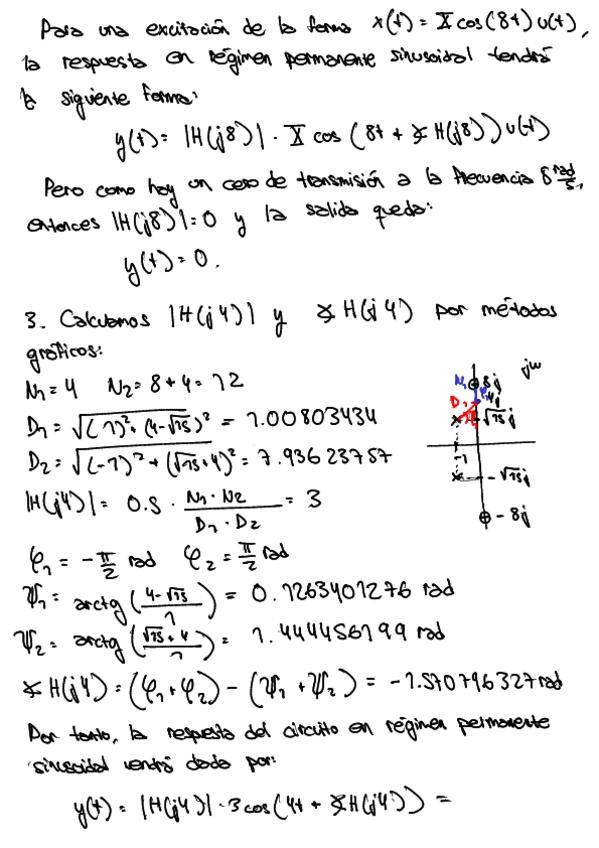 Para una excitación de la forma x(t) = X cos(8t) u(t),
la respuesta en régimen permanente sinusoidal tendrá
la siguiente forma:
y(t) = |H(j8)| · X cos (8t + ∡ H(j8)) u(t)
Pero como hay un cero de transmisión a la frecuencia 8 rad/s,
entonces |H(j8)| = 0 y la salida queda:
y(t) = 0.
3. Calculamos |H(j4)| y ∡ H(j4) por métodos
gráficos:
N₁ = 4 N₂ = 8 + 4 = 12
D₁ = √((1)² + (4-√15)²) = 1.00803434
D₂ = √((-1)² + (√15+4)²) = 7.93623757
|H(j4)| = 0.5 · (N₁ · N₂)/(D₁ · D₂) = 3
φ₁ = -π/2 rad φ₂ = π/2 rad
Ψ₁ = arctg ((4-√15)/1) = 0.1263401276 rad
Ψ₂ = arctg ((√15+4)/1) = 1.444456199 rad
∡ H(j4) = (φ₁ + φ₂) - (Ψ₁ + Ψ₂) = -1.570796327 rad
Por tanto, la respuesta del circuito en régimen permanente
sinusoidal vendrá dada por:
y(t) = |H(j4)| · 3 cos (4t + ∡ H(j4)) =
jω
N₁
8j
4j
D₁
√15j
-1
-√15j
-8j